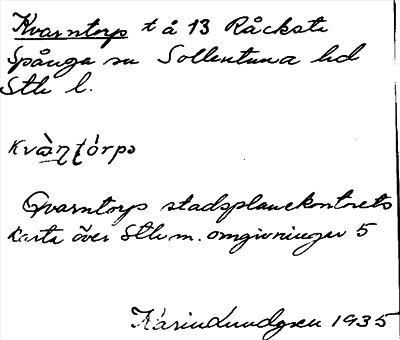 Kvarntorp t å 13 Råcksta
Spånga sn Sollentuna hd
Sthlm l.
kvà̀ṇṭórps
Qvarntorp stadsplanekontorets
karta över Sthlm m. omgivningar 5
Karin Lundgren 1935